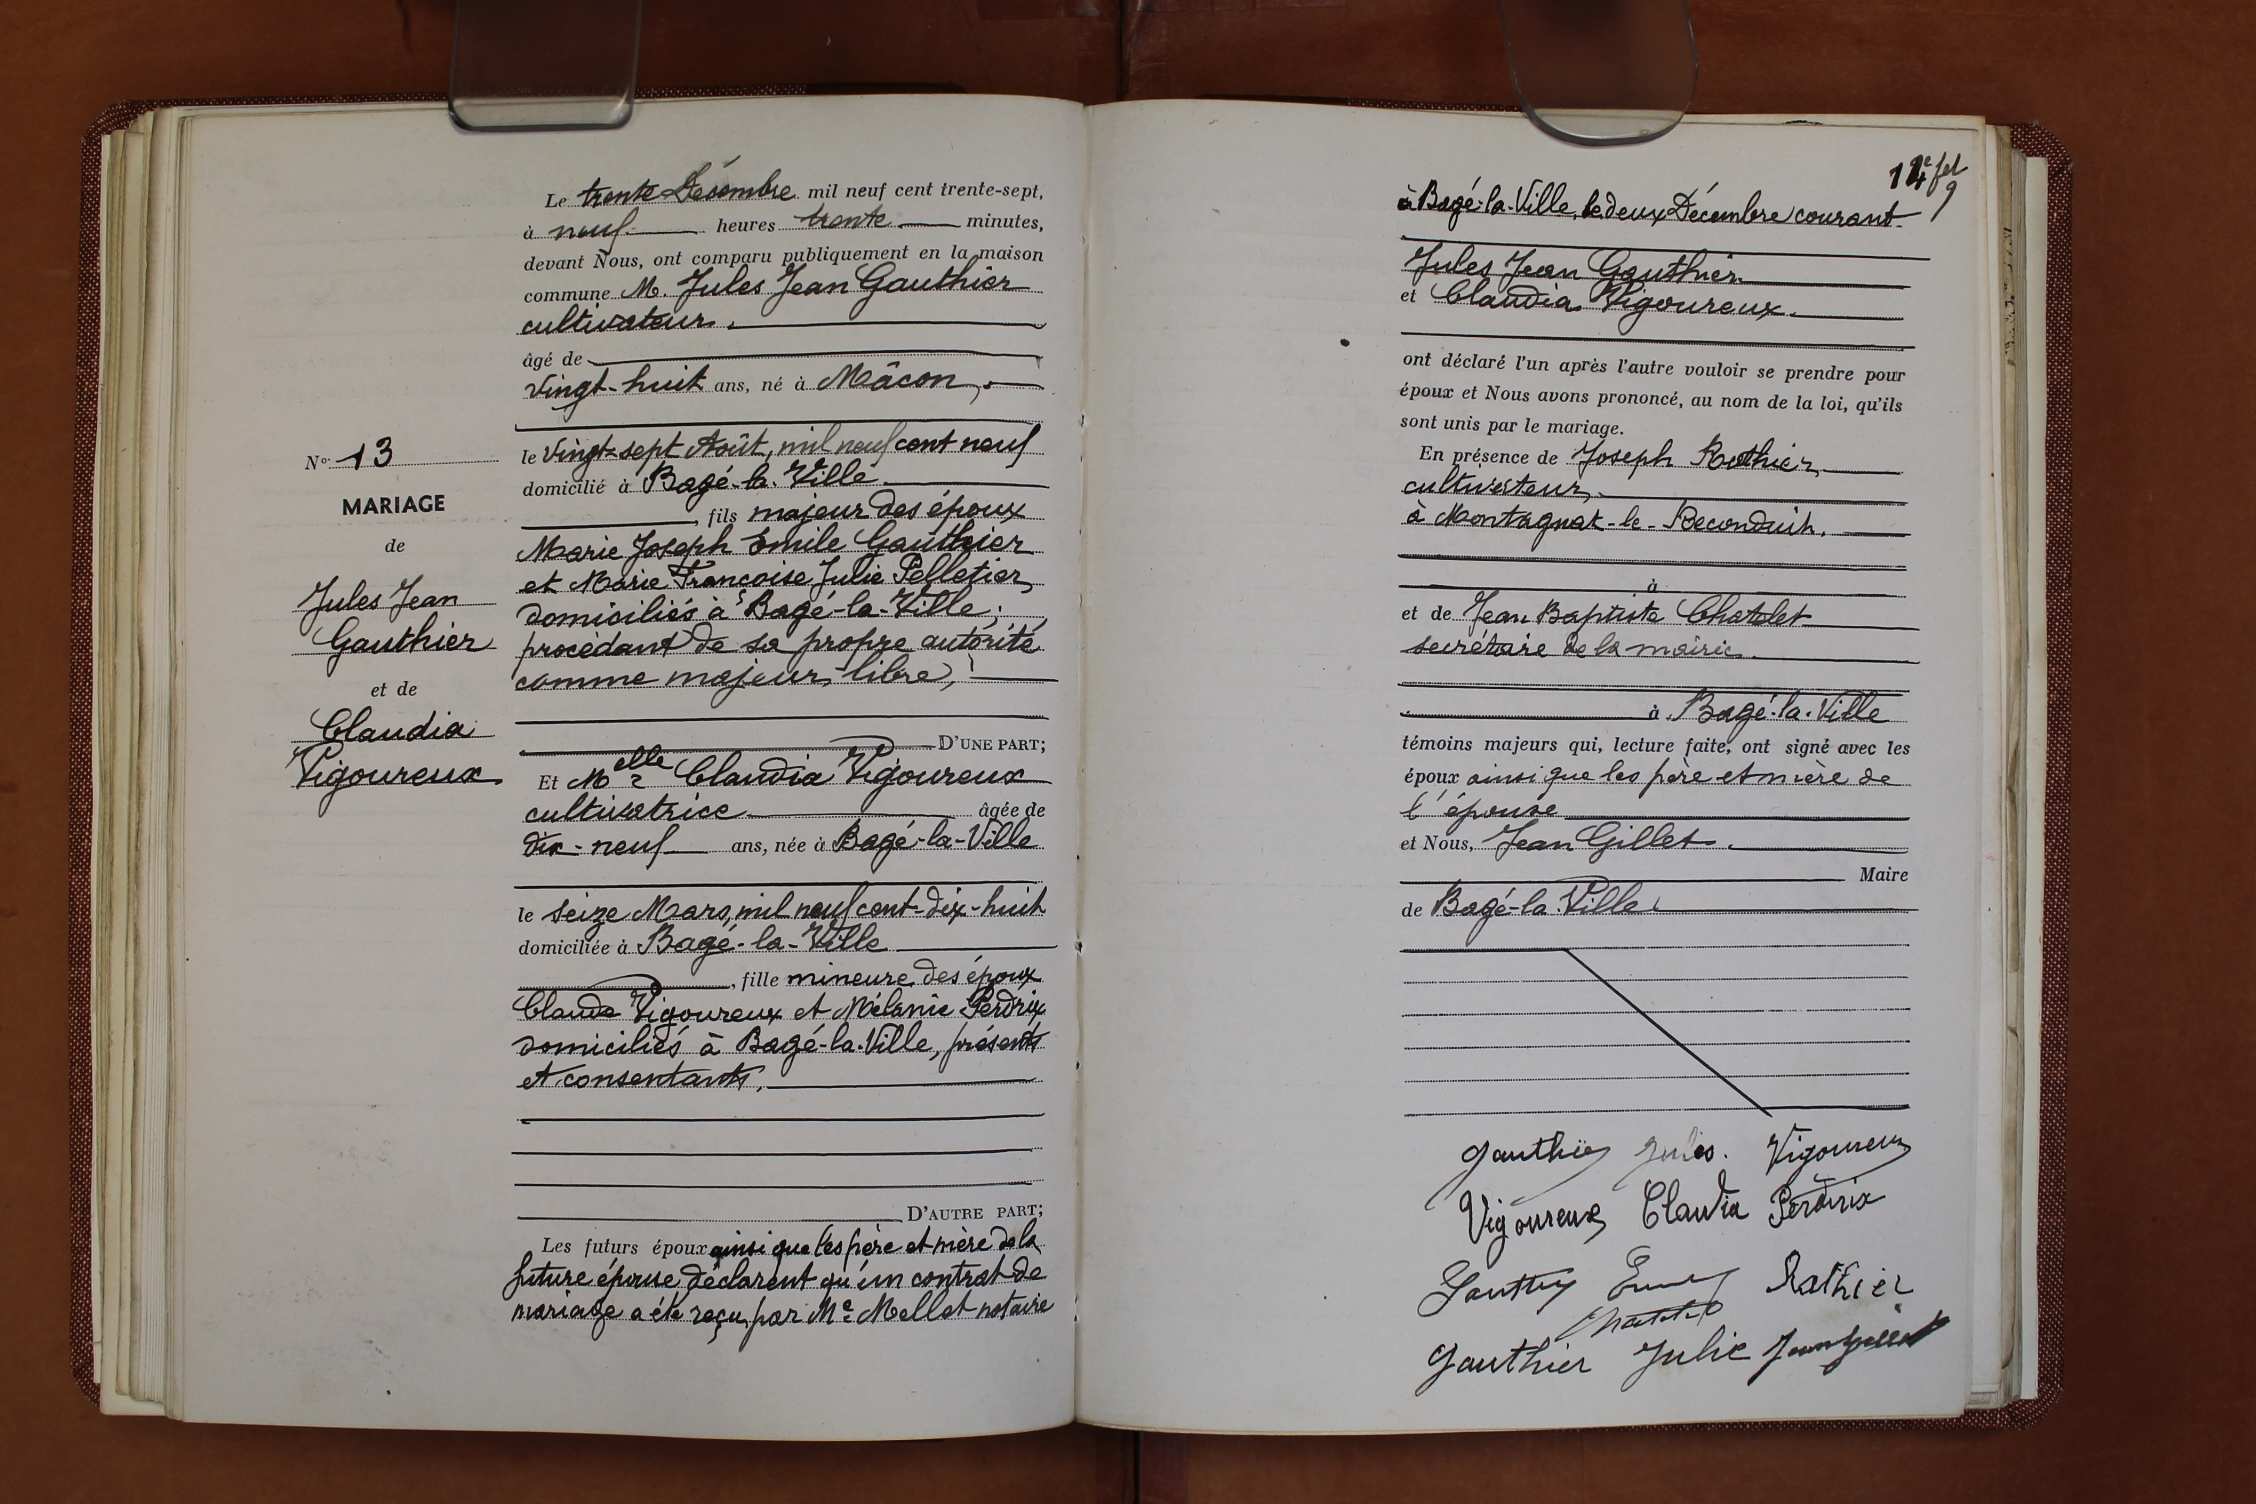 Le trente Décembre mil neuf cent trente-sept,
à neuf heures trente minutes,
devant Nous, ont comparu publiquement en la maison
commune M. Jules Jean Gauthier
cultivateur.
âgé de
vingt-huit ans, né à Mâcon,
le vingt-sept Août, mil neuf cent neuf
domicilié à Bagé-la-Ville
, fils majeur des époux
Marie Joseph Emile Gauthier
et Marie Françoise Julie Pelletier,
domiciliés à Bagé-la-Ville;
procédant de sa propre autorité
comme majeur libre,
D'UNE PART;
Et Melle Claudia Vigoureux
cultivatrice âgée de
dix-neuf ans, née à Bagé-la-Ville
le seize Mars, mil neuf cent-dix-huit
domiciliée à Bagé-la-Ville
, fille mineure des époux
Claude Vigoureux et Mélanie Perdrix
domiciliés à Bagé-la-Ville, présents
et consentants,
D'AUTRE PART;
Les futurs époux ainsi que les père et mère de la
future épouse déclarent qu'un contrat de
mariage a été reçu par Me Mellet notaire
No 13
MARIAGE
de
Jules Jean
Gauthier
et de
Claudia
Vigoureux
14e fet
9
à Bagé-la-Ville, le deux Décembre courant.
Jules Jean Gauthier
et Claudia Vigoureux.
ont déclaré l'un après l'autre vouloir se prendre pour
époux et Nous avons prononcé, au nom de la loi, qu'ils
sont unis par le mariage.
En présence de Joseph Rathier,
cultivateur,
à Montagnat-le-Reconduit,
à
et de Jean Baptiste Chatelet
secrétaire de la mairie
à Bagé-la-Ville
témoins majeurs qui, lecture faite, ont signé avec les
époux ainsi que les père et mère de
l'épouse
et Nous, Jean Gillet.
Maire
de Bagé-la-Ville.
Gauthier Jules. Vigoureux
Vigoureux Claudia Perdrix
Gauthier Emile Rathier
Chatelet
Gauthier Julie Jean Gillet